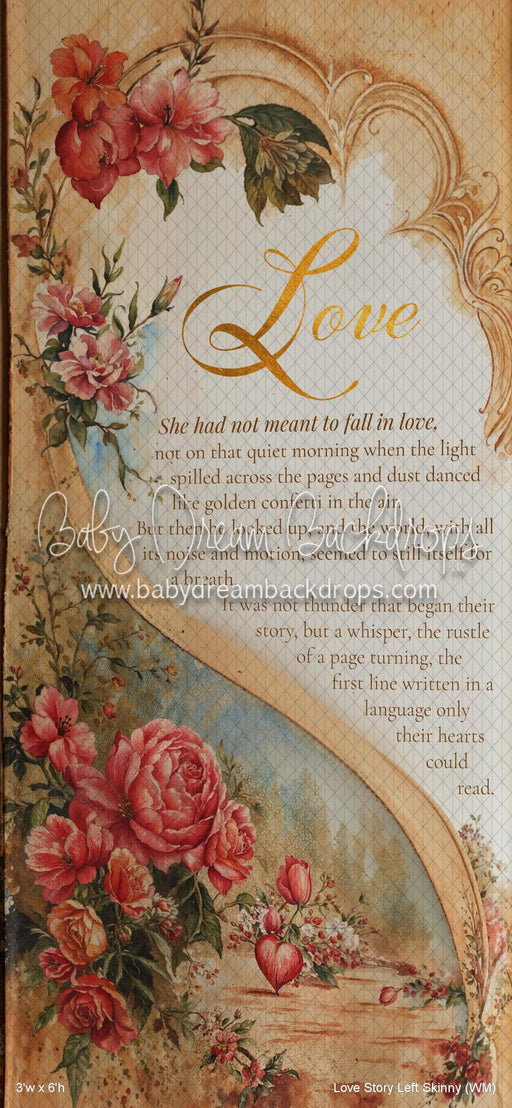 Love
She had not meant to fall in love,
not on that quiet morning when the light
spilled across the pages and dust danced
like golden confetti in the air.
Baby Dream Backdrops
LLC
But then he looked up, and the world, with all
its noise and motion, seemed to still itself for
a breath.
www.babydreambackdrops.com
It was not thunder that began their
story, but a whisper, the rustle
of a page turning, the
first line written in a
language only
their hearts
could
read.
3'w x 6'h
Love Story Left Skinny (WM)